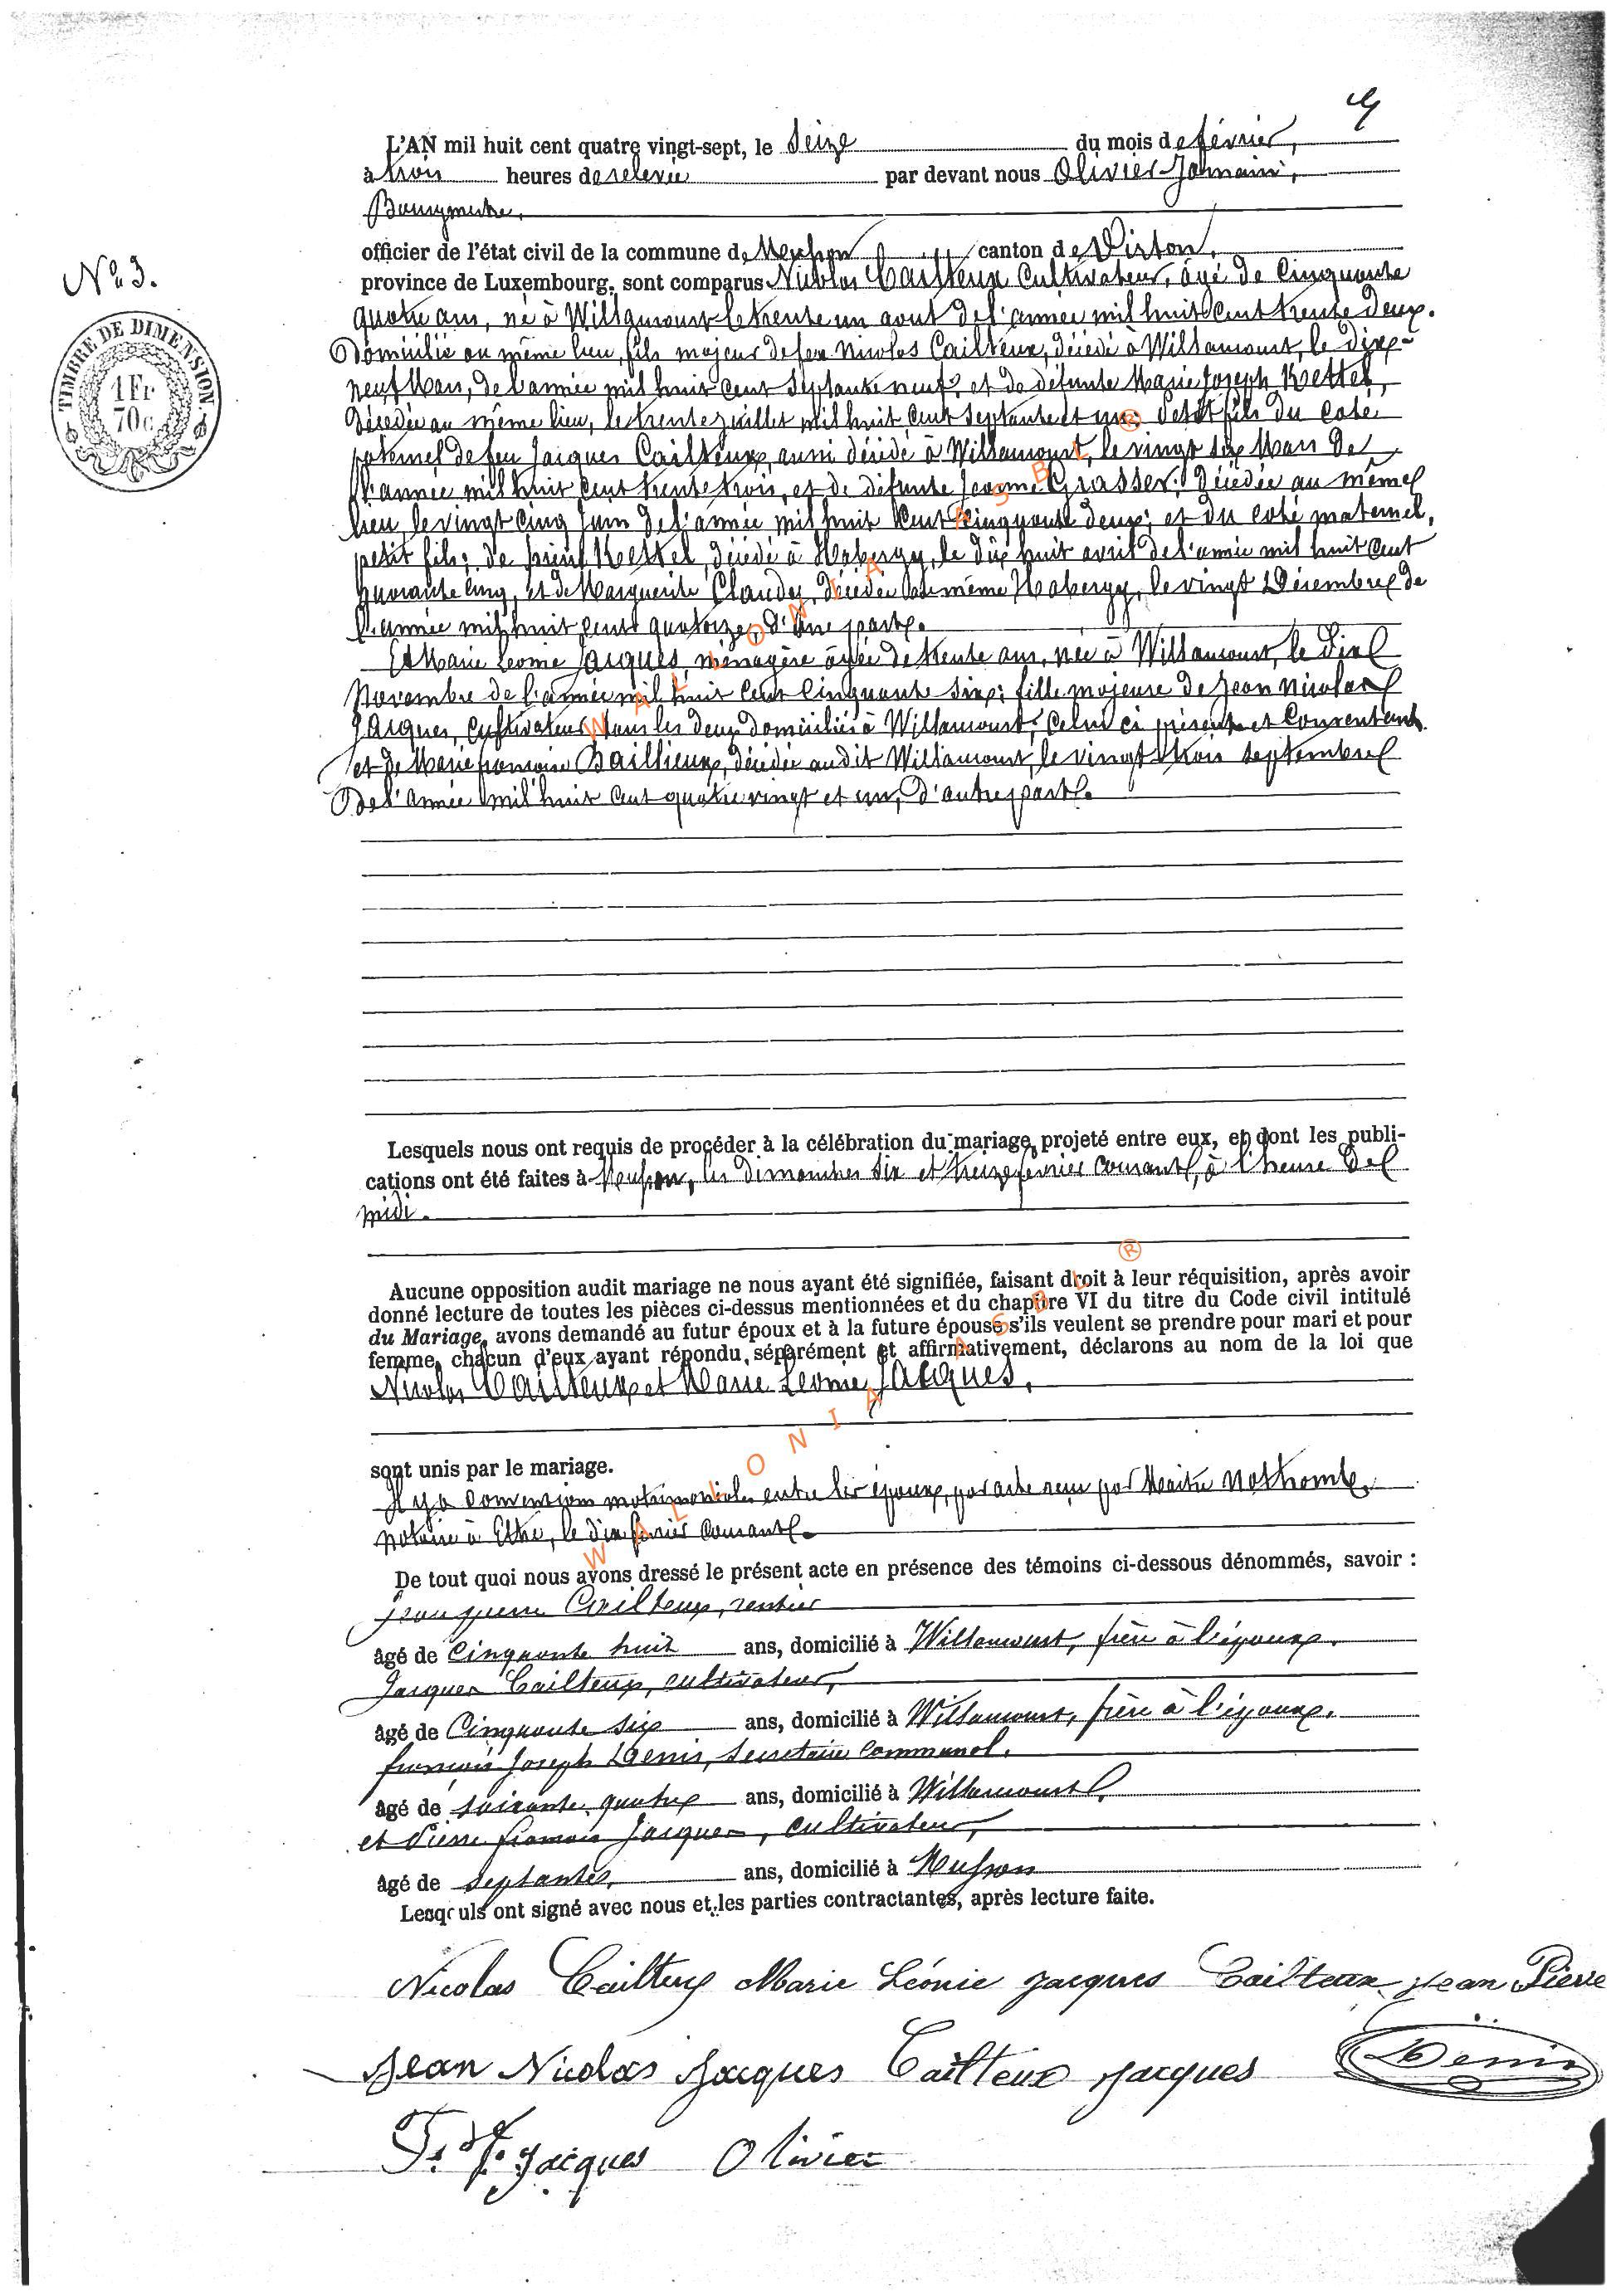 4
L'AN mil huit cent quatre vingt-sept, le Seize du mois de février,
à trois heures de relevée par devant nous Olivier Jamain,
Bourgmestre,
officier de l'état civil de la commune de Musson canton de Virton,
N° 3.
province de Luxembourg, sont comparus Nicolas Cailteux Cultivateur, âgé de Cinquante
quatre ans, né à Willancourt le trente un aout de l'année mil huit Cent trente deux.
TIMBRE DE DIMENSION
1 Fr
70 c
Domicilié au même lieu, fils majeur de feu Nicolas Cailteux, décédé à Willancourt, le dix-
neuf Mars, de l'année mil huit cent Septante neuf, et de défunte Marie Joseph Kettel,
Décédée au même lieu, le trente juillet mil huit cent septante et un. Petit fils du coté
paternel de feu Jacques Cailteux, aussi décédé à Willancourt, le vingt six Mars de
l'année mil huit cent trente trois, et de défunte Jeanne Grasser, Décédée au même
lieu, le vingt Cinq Juin de l'année mil huit Cent Cinquante deux; et du coté maternel,
petit fils; de Pierre Kettel, décédé à Habergy, le dix huit avril de l'année mil huit Cent
quarante cinq, et de Marguerite Claudey, Décédée au même Habergy, le vingt Décembre de
l'année mil huit cent quatorze, d'une part.
Et Marie Léonie Jacques, ménagère âgée de trente ans, née à Willancourt, le dix
Novembre de l'année mil huit Cent Cinquante six; fille majeure de Jean Nicolas
Jacques, Cultivateur, tous les deux domiciliés à Willancourt, Celui ci présent et Consentant
et de Marie françoise Baillieux, décédée audit Willancourt, le vingt trois septembre
De l'année mil huit Cent quatre vingt et un, d'autre part.
Lesquels nous ont requis de procéder à la célébration du mariage projeté entre eux, et dont les publi-
cations ont été faites à Musson, les dimanches six et treize février courant, à l'heure de
midi.
Aucune opposition audit mariage ne nous ayant été signifiée, faisant droit à leur réquisition, après avoir
donné lecture de toutes les pièces ci-dessus mentionnées et du chapitre VI du titre du Code civil intitulé
du Mariage, avons demandé au futur époux et à la future épouse s'ils veulent se prendre pour mari et pour
femme, chacun d'eux ayant répondu, séparément et affirmativement, déclarons au nom de la loi que
Nicolas Cailteux et Marie Léonie Jacques,
sont unis par le mariage.
Il y a Convention matrimoniale entre les époux, par acte reçu par Maitre Nothomb,
notaire à Ethe, le dix février Courant.
De tout quoi nous avons dressé le présent acte en présence des témoins ci-dessous dénommés, savoir :
Jean pierre Cailteux, rentier
âgé de Cinquante huit ans, domicilié à Willancourt, frère à l'époux.
Jacques Cailteux, cultivateur,
âgé de Cinquante six ans, domicilié à Willancourt, frère à l'époux.
françois Joseph Denis, Secrétaire Communal.
âgé de soixante quatre ans, domicilié à Willancourt,
et Pierre francois Jacques, Cultivateur,
âgé de Septante, ans, domicilié à Musson
Lesquels ont signé avec nous et les parties contractantes, après lecture faite.
Nicolas Cailteux Marie Léonie Jacques Cailteux Jean Pierre
Jean Nicolas Jacques Cailteux Jacques Denis
P. F. Jacques Olivier
WALLONIA ASBL ®
WALLONIA ASBL ®